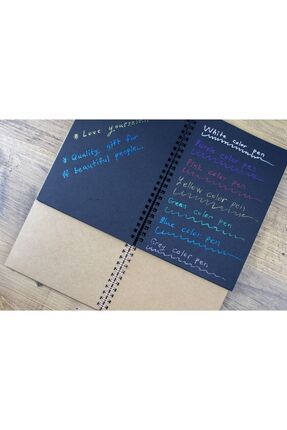 * Love yourself...
* Quality gift for
beautiful people...
White color pen
Purple color pen
Pink color pen
Yellow color pen
Green color pen
Blue color pen
Grey color pen